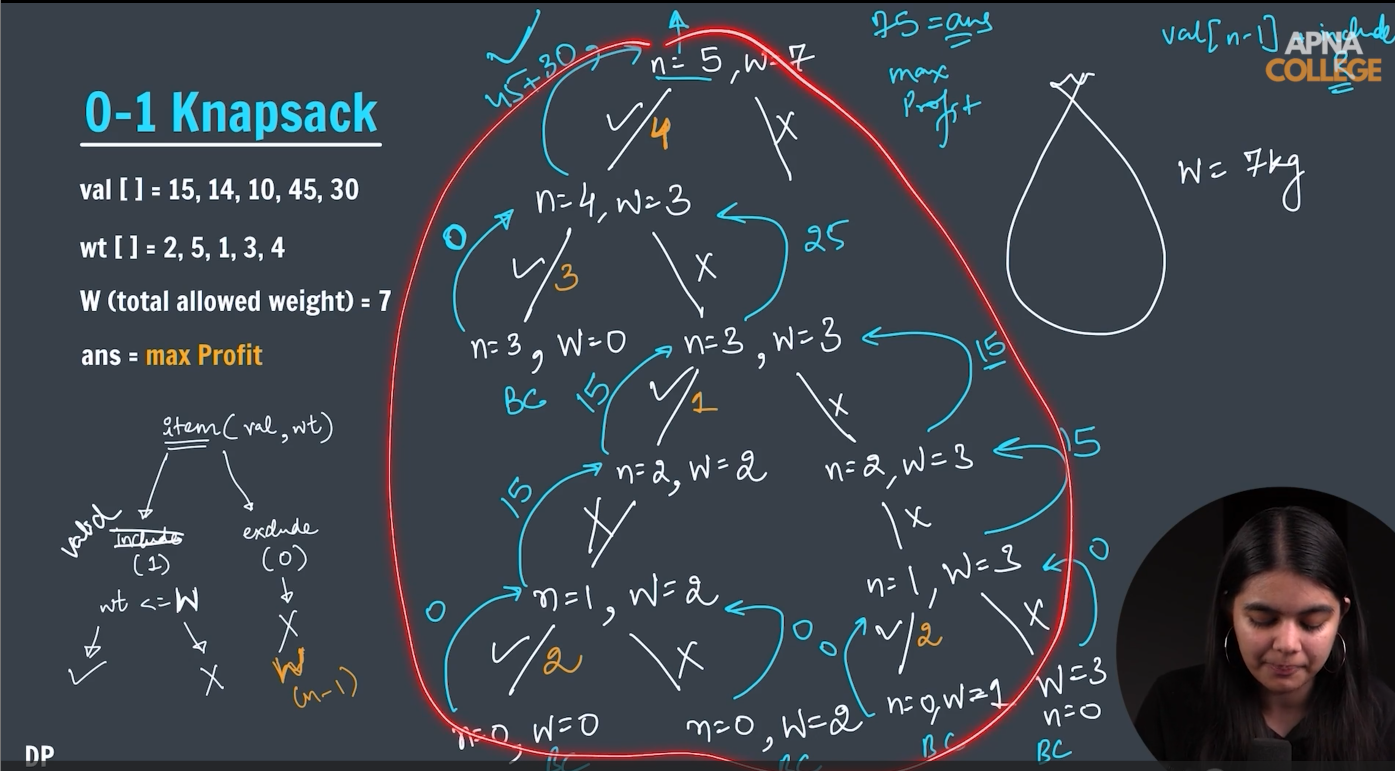 0-1 Knapsack
val [ ] = 15, 14, 10, 45, 30
wt [ ] = 2, 5, 1, 3, 4
W (total allowed weight) = 7
ans = max Profit
item(val, wt)
valid
include
(1)
exclude
(0)
wt <= W
X
X
W
(n-1)
DP
45+30
n=5, W=7
4
X
n=4, W=3
0
3
X
25
n=3, W=0
BC
n=3, W=3
15
1
X
15
n=2, W=2
n=2, W=3
15
15
X
X
n=1, W=2
n=1, W=3
0
2
X
0
0
2
X
0
n=0, W=0
BC
n=0, W=2
BC
n=0, W=1
BC
W=3
n=0
BC
75 = ans
max
Profit
val[n-1] include
APNA
COLLEGE
W = 7kg